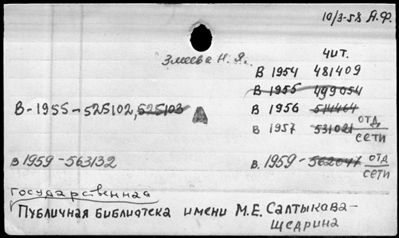 10/3-58 А.Ф.
Змеева Н. Я.
чит.
В 1954 481409
В 1955 499054
В-1955-525102, 525103 А
В 1956 514464
В 1957 531021 отд сети
В 1959-563132
В. 1959- 562647 отд сети
Государственная
Публичная библиотека имени М.Е. Салтыкова-
Щедрина